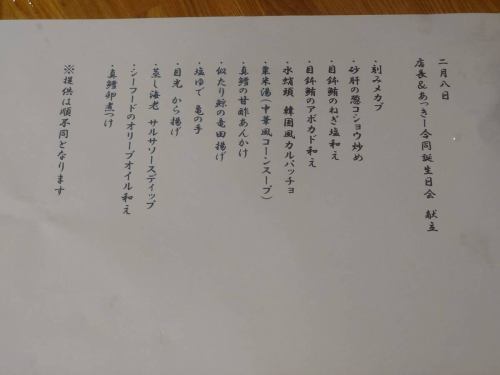 二月八日
店長&あっきー合同誕生日会 献立
・刻みメカブ
・砂肝の葱コショウ炒め
・目鉢鮪のねぎ塩和え
・目鉢鮪のアボカド和え
・水蛸頭 韓国風カルパッチョ
・粟米湯(中華風コーンスープ)
・真鱈の甘酢あんかけ
・似たり鯨の竜田揚げ
・塩ゆで 亀の手
・目光 から揚げ
・蒸し海老 サルサソースディップ
・シーフードのオリーブオイル和え
・真鱈卵煮つけ
※提供は順不同となります